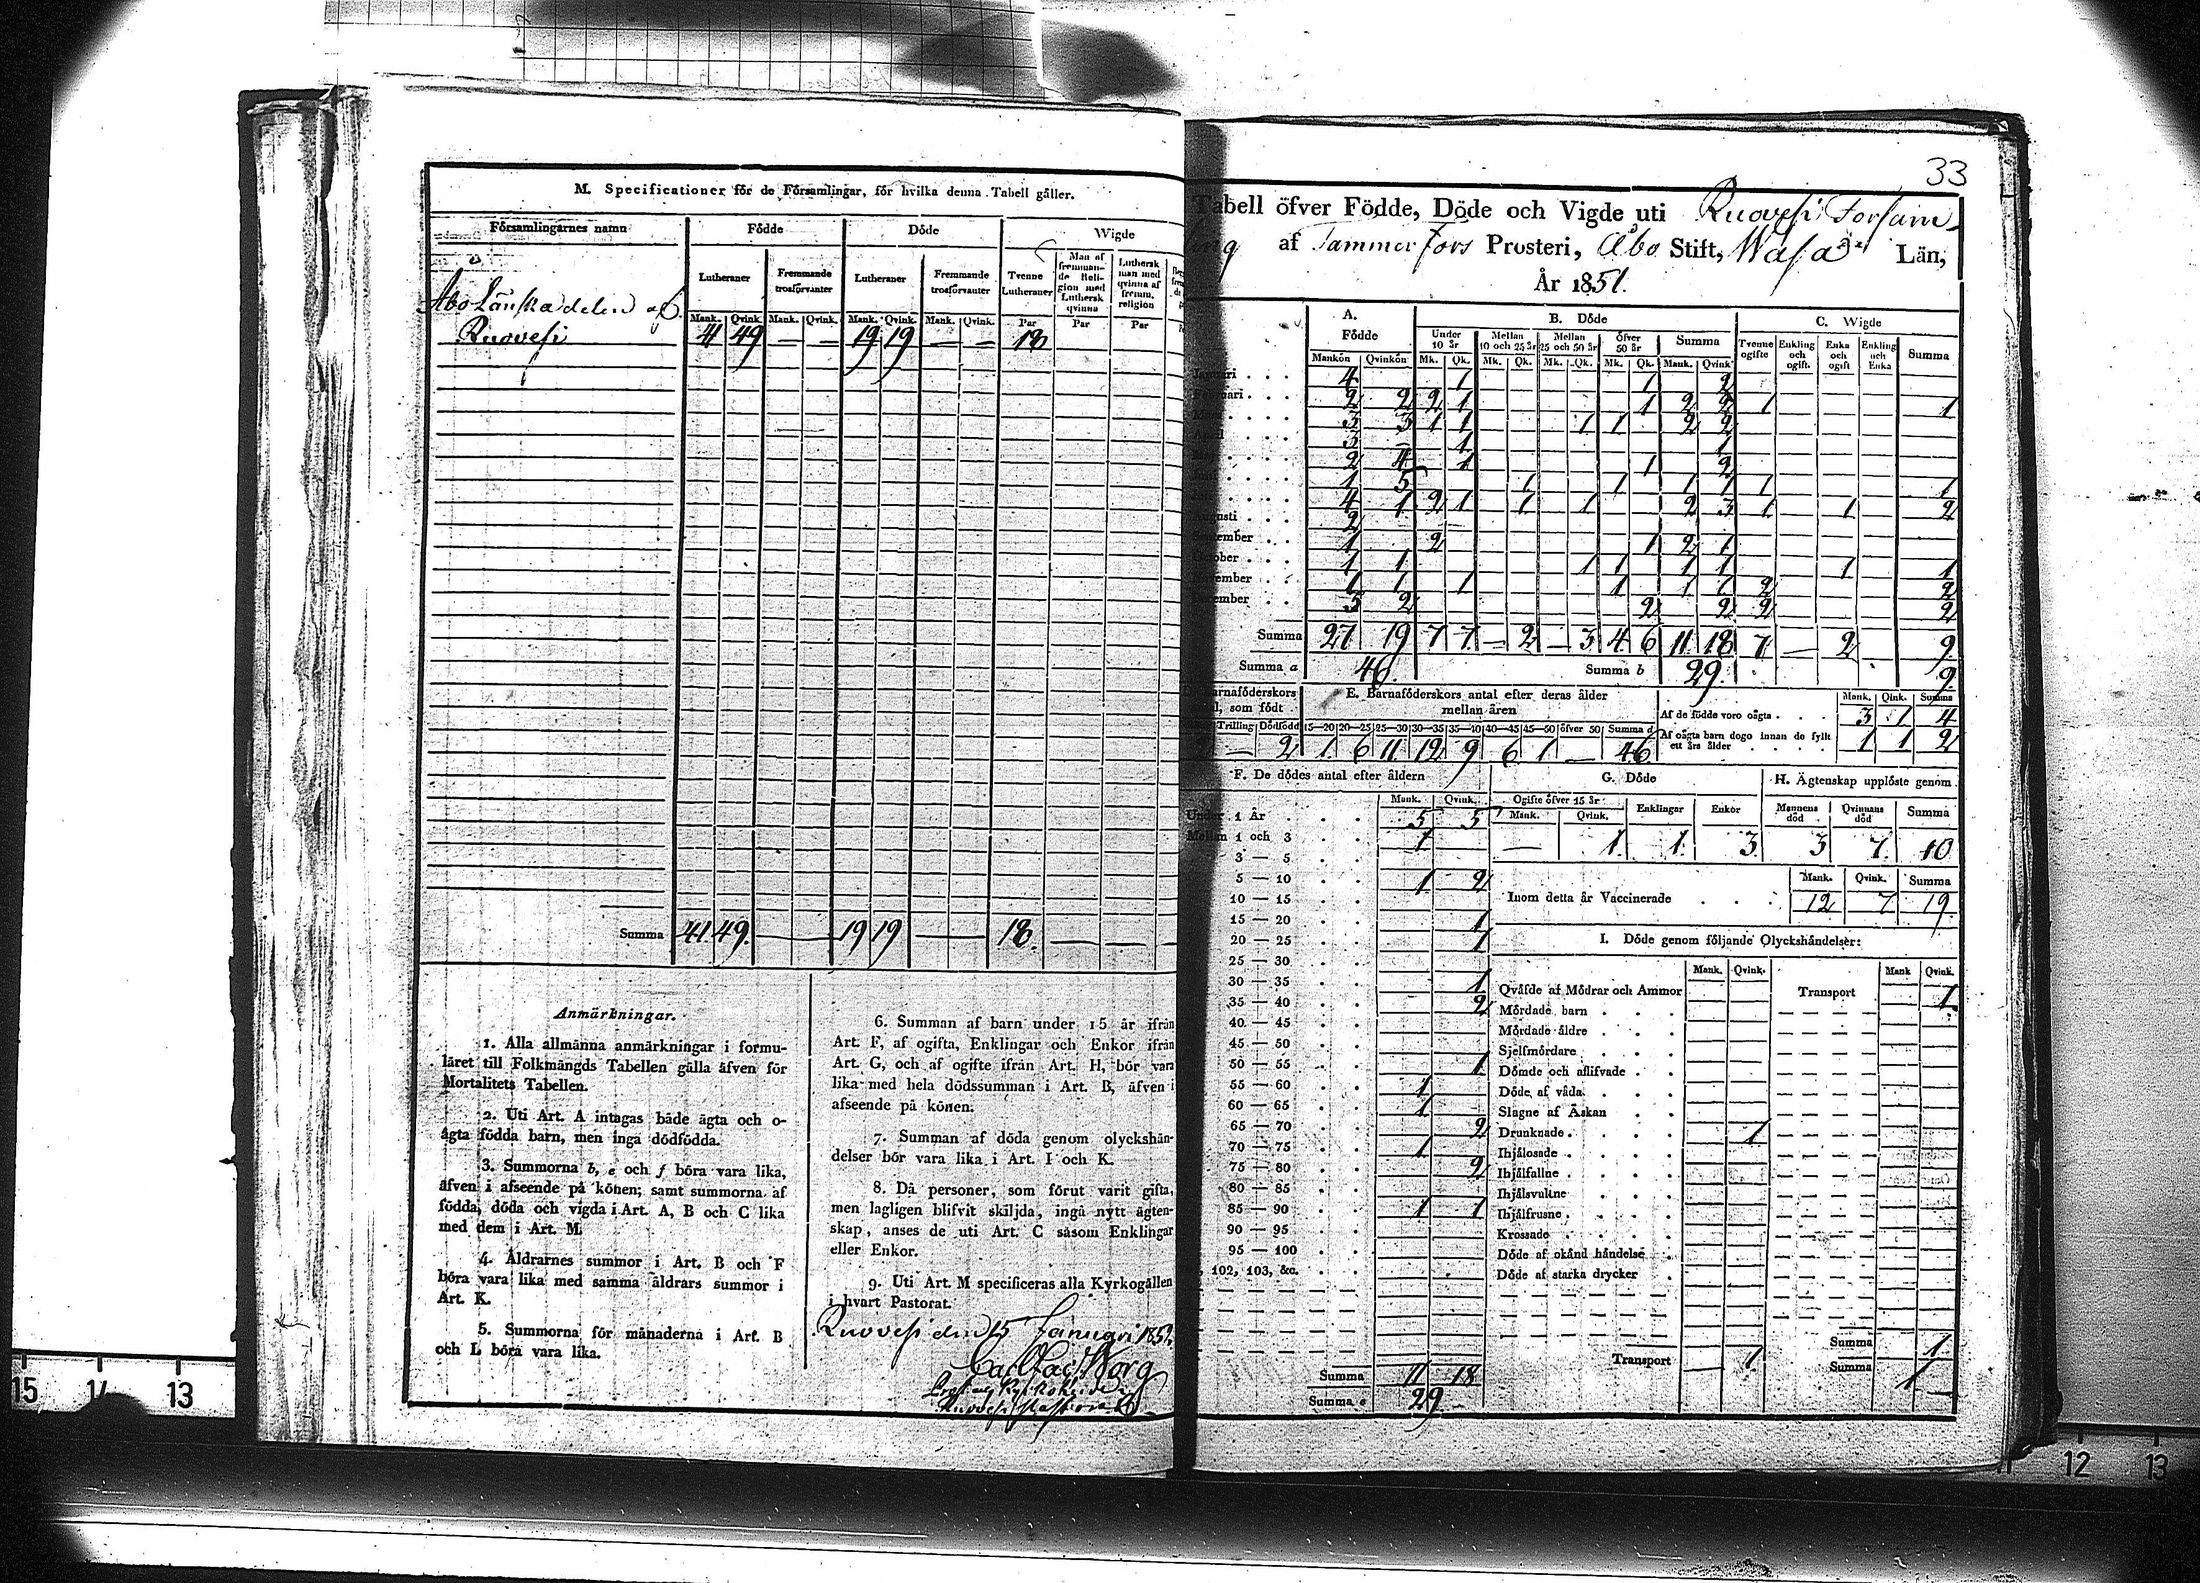 M. Specificationer för de Församlingar, för hvilka denna Tabell gäller.
Församlingarnes namn
Födde
Döde
Wigde
Lutheraner
Fremmande trosförvanter
Lutheraner
Fremmande trosförvanter
Tvenne Lutheraner
Man af fremman-de Reli-gion med Luthersk qvinna
Luthersk man med qvinna af fremm. religion
Mank. Qvink. Mank. Qvink. Mank. Qvink. Mank. Qvink. Par Par Par
Åbo Länska delen af
Ruovesi 41 49 — — 19 19 — — 18
Summa 41 49 — 19 19 — 18. — — —
Anmärkningar.
1. Alla allmänna anmärkningar i formu-
läret till Folkmängds Tabellen gälla äfven för
Mortalitets Tabellen.
2. Uti Art. A intagas både ägta och o-
ägta födda barn, men inga dödfödda.
3. Summorna b, e och f böra vara lika,
äfven i afseende på könen; samt summorna af
födda, döda och vigda i Art. A, B och C lika
med dem i Art. M.
4. Åldrarnes summor i Art. B och F
böra vara lika med samma åldrars summor i
Art. K.
5. Summorna för månaderna i Art. B
och L böra vara lika.
6. Summan af barn under 15 år ifrån
Art. F, af ogifta, Enklingar och Enkor ifrån
Art. G, och af ogifte ifrån Art. H, bör vara
lika med hela dödssumman i Art. B, äfven i
afseende på könen.
7. Summan af döda genom olyckshän-
delser bör vara lika i Art. I och K.
8. Då personer, som förut varit gifta,
men lagligen blifvit skiljda, ingå nytt ägten-
skap, anses de uti Art. C såsom Enklingar
eller Enkor.
9. Uti Art. M specificeras alla Kyrkogällen
i hvart Pastorat.
Ruovesi den 15 Januari 1852.
33
Tabell öfver Födde, Döde och Vigde uti Ruovesi Försam
ling af Tammerfors Prosteri, Åbo Stift, Wasa Län,
År 1851.
A. Födde
B. Döde
C. Wigde
Under 10 år
Mellan 10 och 25 år
Mellan 25 och 50 år
Öfver 50 år
Summa
Tvenne ogifte
Enkling och ogift.
Enka och ogift
Enkling och Enka
Summa
Mankön Qvinkön Mk. Qk. Mk. Qk. Mk. Qk. Mk. Qk. Mank. Qvink
Januari 4 1 1 2
Februari 2 2 2 1 1 2 2 1 1
Mars 3 3 1 1 1 1 2 2
April 3 — 1 1
2 4 1 1 2
1 5 1 1 1 1 1 1
4 1 2 1 1 1 2 3 1 1 2
Augusti 2
September 1 2 1 2 1
October 1 1 1 1 1 1 1 1
November 1 1 1 1 1 1 2 2
December 3 2 2 2 2 2
Summa 27 19 7 7 — 2 — 3 4 6 11 18 7 — 2 9
Summa a 46. Summa b 29. 9
Barnaföderskors
l, som födt
Trilling Dödfödd
— 2
E. Barnaföderskors antal efter deras ålder
mellan åren
15—20 20—25 25—30 30—35 35—40 40—45 45—50 öfver 50 Summa d
1 6 11 12 9 6 1 — 46
Mank. Qink. Summa
Af de födde voro oägta 3 1 4
Af oägta barn dogo innan de fylt ett års ålder 1 1 2
F. De dödes antal efter åldern
Mank. Qvink.
Under 1 År 5 5
Mellan 1 och 3 1
3 — 5
5 — 10 1 2
10 — 15
15 — 20 1
20 — 25 1
25 — 30
30 — 35 1
35 — 40 2
40 — 45
45 — 50
50 — 55 1
55 — 60 1
60 — 65 1
65 — 70 2
70 — 75 1
75 — 80 2
80 — 85
85 — 90 1 1
90 — 95
95 — 100
102, 103, &c.
Summa 11 18
Summa e 29
G. Döde
Ogifte öfver 15 år
Enklingar
Enkor
Mank. Qvink.
— 1. 1. 3.
H. Ägtenskap upplöste genom
Mannens död
Qvinnans död
Summa
3 7. 10
Mank. Qvink. Summa
Inom detta år Vaccinerade 12 7 19.
I. Döde genom följande Olyckshändelser:
Mank. Qvink. Mank Qvink.
Qväfde af Mödrar och Ammor
Transport 1.
Mördade barn
Mördade äldre
Sjelfmördare
Dömde och aflifvade
Döde af våda
Slagne af Åskan
Drunknade 1
Ihjälosade
Ihjälfallne
Ihjälsvultne
Ihjälfrusne
Krossade
Döde af okänd händelse
Döde af starka drycker
Summa 1
Transport — 1
Summa 1
15 14 13
11 12 13